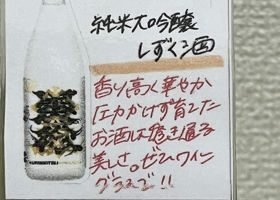 純米大吟醸
しずく酒
香り高く華やか
圧力かけず育した
お酒は透き通る
美しさ。ぜひワイン
グラスで!!